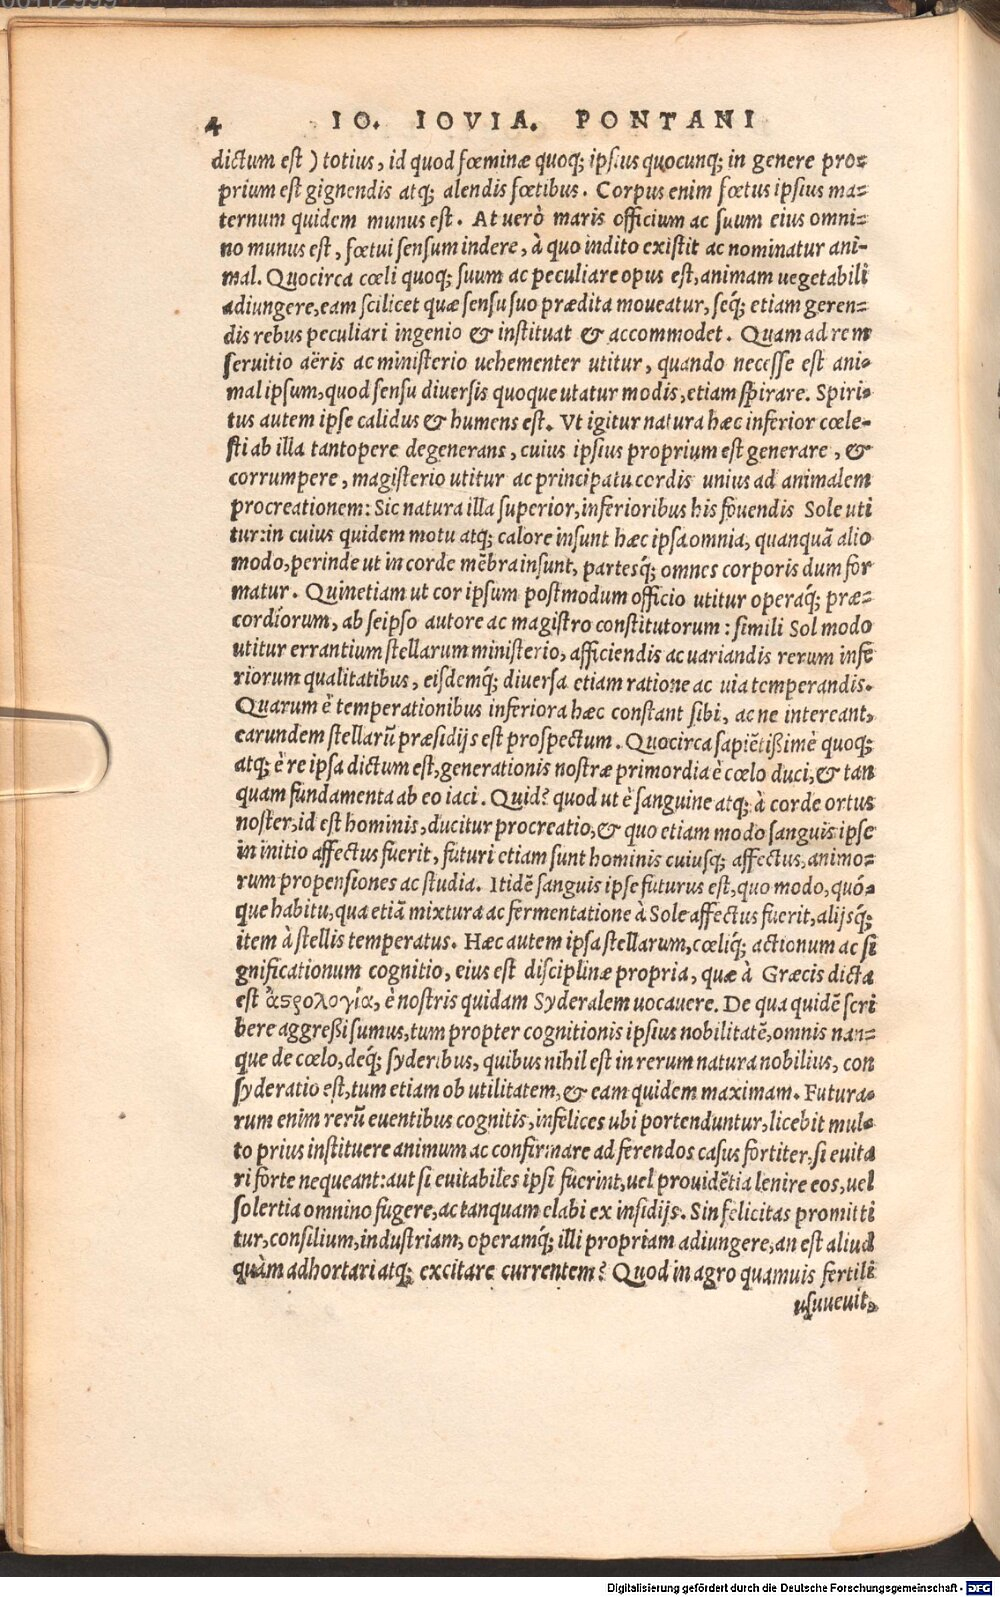 4 IO. IOVIA. PONTANI
dictum est) totius, id quod fœminæ quoq; ipsius quocunq; in genere pro=
prium est gignendis atq; alendis fœtibus. Corpus enim fœtus ipsius ma=
ternum quidem munus est. At uerò maris officium ac suum eius omni=
no munus est, fœtui sensum indere, à quo indito existit ac nominatur ani-
mal. Quocirca cœli quoq; suum ac peculiare opus est, animam uegetabili
adiungere, eam scilicet quæ sensu suo prædita moueatur, seq́; etiam geren=
dis rebus peculiari ingenio & instituat & accommodet. Quam ad rem
seruitio aëris ac ministerio uehementer utitur, quando necesse est ani-
mal ipsum, quod sensu diuersis quoque utatur modis, etiam spirare. Spiri-
tus autem ipse calidus & humens est. Vt igitur natura hæc inferior cœle-
sti ab illa tantopere degenerans, cuius ipsius proprium est generare, &
corrumpere, magisterio utitur ac principatu cordis unius ad animalem
procreationem: Sic natura illa superior, inferioribus his fouendis Sole uti
tur: in cuius quidem motu atq; calore insunt hæc ipsa omnia, quanquā alio
modo, perinde ut in corde mēbra insunt, partesq́; omnes corporis dum for
matur. Quinetiam ut cor ipsum postmodum officio utitur operaq́; præ=
cordiorum, ab seipso autore ac magistro constitutorum: simili Sol modo
utitur errantium stellarum ministerio, afficiendis ac uariandis rerum infe
riorum qualitatibus, eisdemq́; diuersa etiam ratione ac uia temperandis.
Quarum è temperationibus inferiora hæc constant sibi, ac ne intereant,
earundem stellarū præsidijs est prospectum. Quocirca sapiētißimè quoq;
atq; è re ipsa dictum est, generationis nostræ primordia è cœlo duci, & tan
quam fundamenta ab eo iaci. Quid? quod ut è sanguine atq; à corde ortus
noster, id est hominis, ducitur procreatio, & quo etiam modo sanguis ipse
in initio affectus fuerit, futuri etiam sunt hominis cuiusq; affectus, animo=
rum propensiones ac studia. Itidē sanguis ipse futurus est, quo modo, quó-
que habitu, qua etiā mixtura ac fermentatione à Sole affectus fuerit, alijsq́;
item à stellis temperatus. Hæc autem ipsa stellarum, cœliq́; actionum ac si
gnificationum cognitio, eius est disciplinæ propria, quæ à Græcis dicta
est ἀςρολογία, è nostris quidam Syderalem uocauere. De qua quidē scri
bere aggreßi sumus, tum propter cognitionis ipsius nobilitatē, omnis nan=
que de cœlo, deq́; syderibus, quibus nihil est in rerum natura nobilius, con
syderatio est, tum etiam ob utilitatem, & eam quidem maximam. Futura-
rum enim rerū euentibus cognitis, infelices ubi portenduntur, licebit mul-
to prius instituere animum ac confirmare ad ferendos casus fortiter, si euita
ri forte nequeant: aut si euitabiles ipsi fuerint, uel prouidētia lenire eos, uel
solertia omnino fugere, ac tanquam elabi ex insidijs. Sin felicitas promitti
tur, consilium, industriam, operamq́; illi propriam adiungere, an est aliud
quàm adhortari atq; excitare currentem? Quod in agro quamuis fertili
usuueuit,
Digitalisierung gefördert durch die Deutsche Forschungsgemeinschaft - DFG